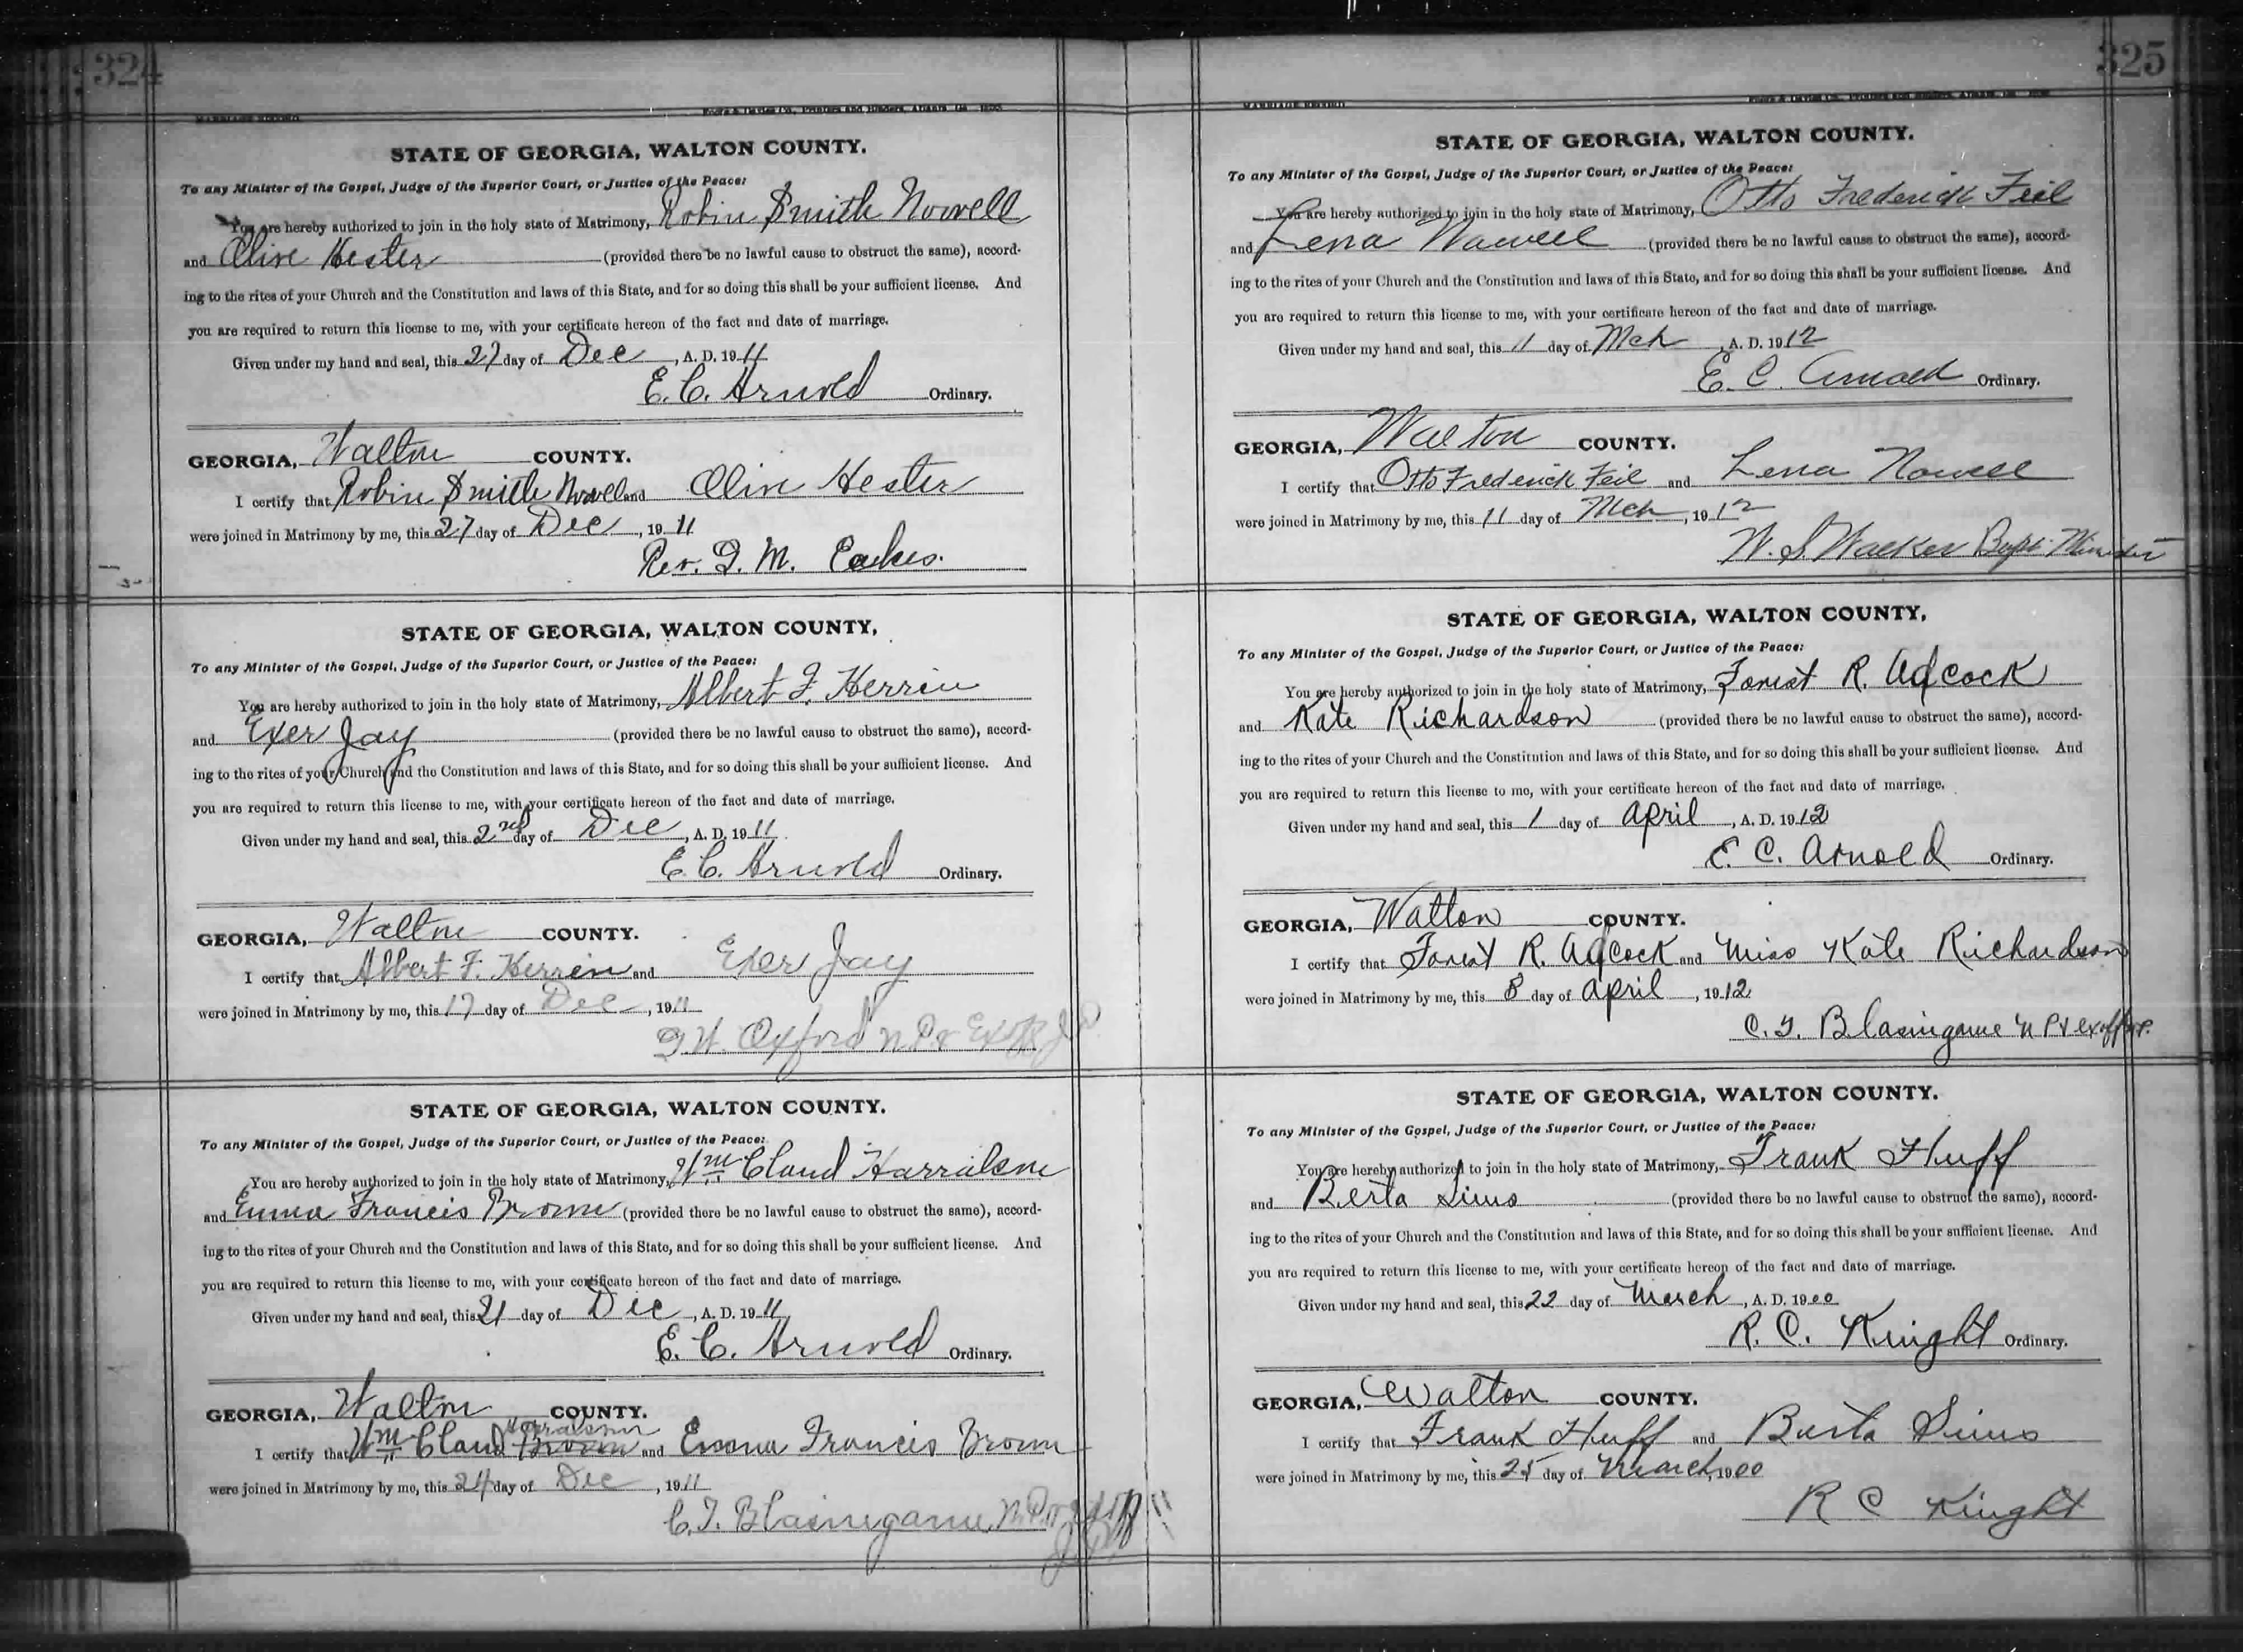 324
MARRIAGE RECORD
Foote & Davies Co., Printers and Binders, Atlanta, Ga.
STATE OF GEORGIA, WALTON COUNTY.
To any Minister of the Gospel, Judge of the Superior Court, or Justice of the Peace:
You are hereby authorized to join in the holy state of Matrimony, Robin Smith Nowell
and Olive Hester (provided there be no lawful cause to obstruct the same), accord-
ing to the rites of your Church and the Constitution and laws of this State, and for so doing this shall be your sufficient license. And
you are required to return this license to me, with your certificate hereon of the fact and date of marriage.
Given under my hand and seal, this 27 day of Dec, A. D. 1911
E. C. Arnold Ordinary.
GEORGIA, Walton COUNTY.
I certify that Robin Smith Nowell and Olive Hester
were joined in Matrimony by me, this 27 day of Dec, 1911
Rev. G. M. Eakes.
STATE OF GEORGIA, WALTON COUNTY,
To any Minister of the Gospel, Judge of the Superior Court, or Justice of the Peace:
You are hereby authorized to join in the holy state of Matrimony, Albert F. Herrin
and Exer Jay (provided there be no lawful cause to obstruct the same), accord-
ing to the rites of your Church and the Constitution and laws of this State, and for so doing this shall be your sufficient license. And
you are required to return this license to me, with your certificate hereon of the fact and date of marriage.
Given under my hand and seal, this 2nd day of Dec, A. D. 1911.
E. C. Arnold Ordinary.
GEORGIA, Walton COUNTY.
I certify that Albert F. Herrin and Exer Jay
were joined in Matrimony by me, this 17 day of Dec, 1911
G. W. Oxford N.P. & Exoff J.P.
STATE OF GEORGIA, WALTON COUNTY.
To any Minister of the Gospel, Judge of the Superior Court, or Justice of the Peace:
You are hereby authorized to join in the holy state of Matrimony, Wm Claud Harralson
and Emma Francis Brown (provided there be no lawful cause to obstruct the same), accord-
ing to the rites of your Church and the Constitution and laws of this State, and for so doing this shall be your sufficient license. And
you are required to return this license to me, with your certificate hereon of the fact and date of marriage.
Given under my hand and seal, this 21 day of Dec, A. D. 1911
E. C. Arnold Ordinary.
GEORGIA, Walton COUNTY.
Harralson
I certify that Wm Claud Brown and Emma Francis Brown
were joined in Matrimony by me, this 24 day of Dec, 1911
C. T. Blasingame, N.P. & exoff
J.P.
325
MARRIAGE RECORD
Foote & Davies Co., Printers and Binders, Atlanta, Ga.
STATE OF GEORGIA, WALTON COUNTY.
To any Minister of the Gospel, Judge of the Superior Court, or Justice of the Peace:
You are hereby authorized to join in the holy state of Matrimony, Otto Frederick Feil
and Lena Nowell (provided there be no lawful cause to obstruct the same), accord-
ing to the rites of your Church and the Constitution and laws of this State, and for so doing this shall be your sufficient license. And
you are required to return this license to me, with your certificate hereon of the fact and date of marriage.
Given under my hand and seal, this 11 day of Mch, A. D. 1912
E. C. Arnold Ordinary.
GEORGIA, Walton COUNTY.
I certify that Otto Frederick Feil and Lena Nowell
were joined in Matrimony by me, this 11 day of Mch, 1912
W. S. Walker Bapt. Minister
STATE OF GEORGIA, WALTON COUNTY,
To any Minister of the Gospel, Judge of the Superior Court, or Justice of the Peace:
You are hereby authorized to join in the holy state of Matrimony, Forest R. Adcock
and Kate Richardson (provided there be no lawful cause to obstruct the same), accord-
ing to the rites of your Church and the Constitution and laws of this State, and for so doing this shall be your sufficient license. And
you are required to return this license to me, with your certificate hereon of the fact and date of marriage.
Given under my hand and seal, this 1 day of April, A. D. 1912
E. C. Arnold Ordinary.
GEORGIA, Walton COUNTY.
I certify that Forest R. Adcock and Miss Kate Richardson
were joined in Matrimony by me, this 8 day of April, 1912
C. T. Blasingame N P & exoff J.P.
STATE OF GEORGIA, WALTON COUNTY.
To any Minister of the Gospel, Judge of the Superior Court, or Justice of the Peace:
You are hereby authorized to join in the holy state of Matrimony, Frank Huff
and Berta Sims (provided there be no lawful cause to obstruct the same), accord-
ing to the rites of your Church and the Constitution and laws of this State, and for so doing this shall be your sufficient license. And
you are required to return this license to me, with your certificate hereon of the fact and date of marriage.
Given under my hand and seal, this 22 day of March, A. D. 1900
R. C. Knight Ordinary.
GEORGIA, Walton COUNTY.
I certify that Frank Huff and Berta Sims
were joined in Matrimony by me, this 25 day of March, 1900
R C Knight